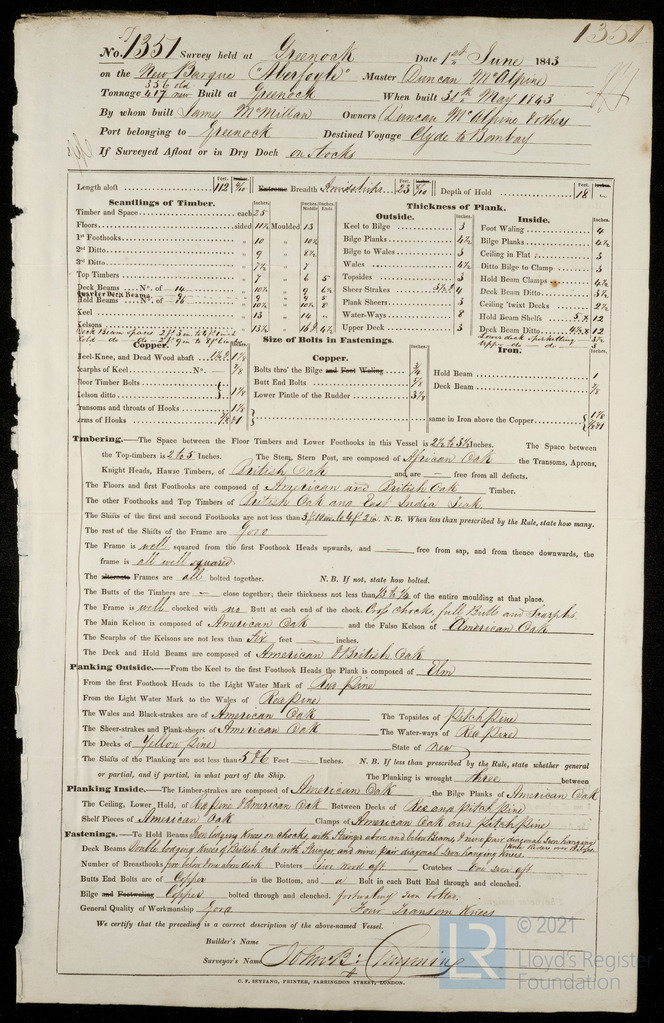 1351
No. 1351 Survey held at Greenock Date 1st June 1843
on the New Barque "Aberfoyle" Master Duncan McAlpine
Tonnage 356 old 417 new Built at Greenock When built 31st May 1843
By whom built James McMillan Owners Duncan McAlpine & others
Port belonging to Greenock Destined Voyage Clyde to Bombay
If Surveyed Afloat or in Dry Dock on stocks
Length aloft 112 Extreme Breadth Amidships 23 Depth of Hold 18
Scantlings of Timber.
Timber and Space each 25
Floors sided 11½ Moulded 13
1st Foothooks 10 10½
2nd Ditto 9 8½
3rd Ditto 7½ 7
Top Timbers 7 6 5
Deck Beams No. of 14
Hold Beams No. of
Keel 13 14
Kelsons
Thickness of Plank.
Outside.
Keel to Bilge 3
Bilge Planks 4½
Bilge to Wales 3
Wales 4½
Topsides 3
Sheer Strakes 4
Plank Sheers 3
Water-Ways 8
Upper Deck 3
Inside.
Foot Waling 4
Bilge Planks 4½
Ceiling in Flat 3
Ditto Bilge to Clamp 3
Hold Beam Clamps 4½
Deck Beam Ditto 3½
Ceiling 'twixt Decks 2½
Hold Beam Shelfs 5 x 12
Deck Beam Ditto 4½ x 12
Size of Bolts in Fastenings.
Copper.
Heel-Knee, and Dead Wood abaft 1⅛
Scarphs of Keel No. ⅞
Floor Timber Bolts
Kelson ditto 1⅛
Transoms and throats of Hooks 1⅛
Arms of Hooks
Copper.
Bolts thro' the Bilge and Foot Waling ¾
Butt End Bolts ⅝
Lower Pintle of the Rudder
Iron.
Hold Beam 1
Deck Beam ⅞
same in Iron above the Copper
Timbering.—The Space between the Floor Timbers and Lower Foothooks in this Vessel is 2½ to 3½ Inches. The Space between
the Top-timbers is 2 to 5 Inches. The Stem, Stern Post, are composed of African Oak the Transoms, Aprons,
Knight Heads, Hawse Timbers, of British Oak and are — free from all defects.
The Floors and first Foothooks are composed of American and British Oak Timber.
The other Foothooks and Top Timbers of British Oak and East India Teak
The Shifts of the first and second Foothooks are not less than 3ft 10in to 4ft 2in N. B. When less than prescribed by the Rule, state how many.
The rest of the Shifts of the Frame are Good
The Frame is well squared from the first Foothook Heads upwards, and — free from sap, and from thence downwards, the
frame is all well squared
The alternate Frames are all bolted together. N. B. If not, state how bolted.
The Butts of the Timbers are — close together; their thickness not less than ⅓ to ¼ of the entire moulding at that place.
The Frame is well chocked with no Butt at each end of the chock. Cross Chocks, full Butts and Scarphs.
The Main Kelson is composed of American Oak and the False Kelson of American Oak
The Scarphs of the Kelsons are not less than Six feet — inches.
The Deck and Hold Beams are composed of American & British Oak
Planking Outside.—From the Keel to the first Foothook Heads the Plank is composed of Elm
From the first Foothook Heads to the Light Water Mark of Red Pine
From the Light Water Mark to the Wales of Red Pine
The Wales and Black-strakes are of American Oak The Topsides of Pitch Pine
The Sheer-strakes and Plank-sheers of American Oak The Water-ways of Red Pine
The Decks of Yellow Pine State of New
The Shifts of the Planking are not less than 5 & 6 Feet — Inches. N. B. If less than prescribed by the Rule, state whether general
or partial, and if partial, in what part of the Ship. The Planking is wrought three between
Planking Inside.—The Limber-strakes are composed of American Oak the Bilge Planks of American Oak
The Ceiling, Lower Hold, of Red Pine & American Oak Between Decks of Red and Pitch Pine
Shelf Pieces of American Oak Clamps of American Oak and Pitch Pine
Fastenings.—To Hold Beams Iron lodging Knees on chocks, with Stringer above and below Beams, & nine pair diagonal Iron hanging Knee Riders over Bilges
Deck Beams Double lodging Knees of British Oak with Stringer, and nine pair diagonal Iron hanging Knees.
Number of Breasthooks four below two above deck Pointers two wood aft Crutches two iron aft
Butts End Bolts are of Copper in the Bottom, and a Bolt in each Butt End through and clenched.
Bilge and Footwaling Copper bolted through and clenched. footwaling Iron bolted.
General Quality of Workmanship Good Four Transom Knees
We certify that the preceding is a correct description of the above-named Vessel.
Builder's Name
Surveyor's Name John B. Cumming
C. F. SEYFANG, PRINTER, FARRINGDON STREET, LONDON.
© 2021
LR Lloyd's Register
Foundation